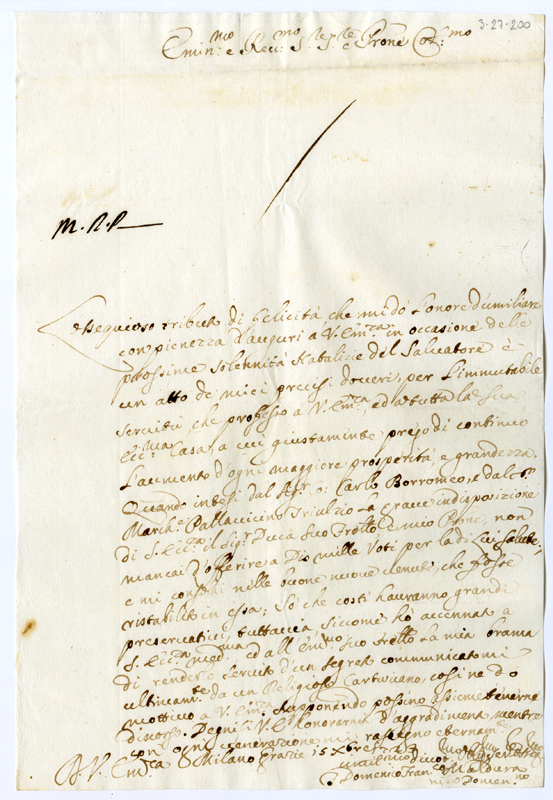 3-27-200
Emin.mo e Rev.mo Sig.re Sig.re e Prone Col.mo
M. R. P.
L'ossequioso tributo di felicità che mi dò l'onore d'umiliare
con pienezza d'auguri a V. Em.za in occasione delle
prossime solennità Natalizie del Salvatore è
un atto de miei precisi doveri, per l'immutabile
servitù che professo a V. Em.za, ed a tutta la Sua
Ecc.ma Casa, a cui giustamente prego di continuo
l'aumento d'ogni maggiore prosperità, e grandezza.
Quando intesi dal Sig.r Carlo Borromeo, e dal
March.e Pallavicino Triulzio la grave indisposizione
di S. Ecc.za il Sig.r Duca suo Frello e mio Prone, non
mancai d'offerire a Dio mille Voti per la di Lui salute,
e mi consolai nelle buone nuove venute, che fosse
ristabilito in essa; Sò che costì hauranno grandi
preservativi, tuttavia siccome hò accennato a
S. Ecc.za med.ma ed all'Em.mo suo frello la mia brama
di rendere servito d'un segreto communicatomi
ultimam.te da un Religioso Cartusiano, così ne dò
mottivo a V. Em.za, supponendo possino assieme tenerne
discorso. Degnisi V. E. honorarmi d'aggradimen. mentre
con ogni venerazione mi rassegno eternam.
D. V. Em.za Milano 15 Xbre
Domenico Fran.co Maldura